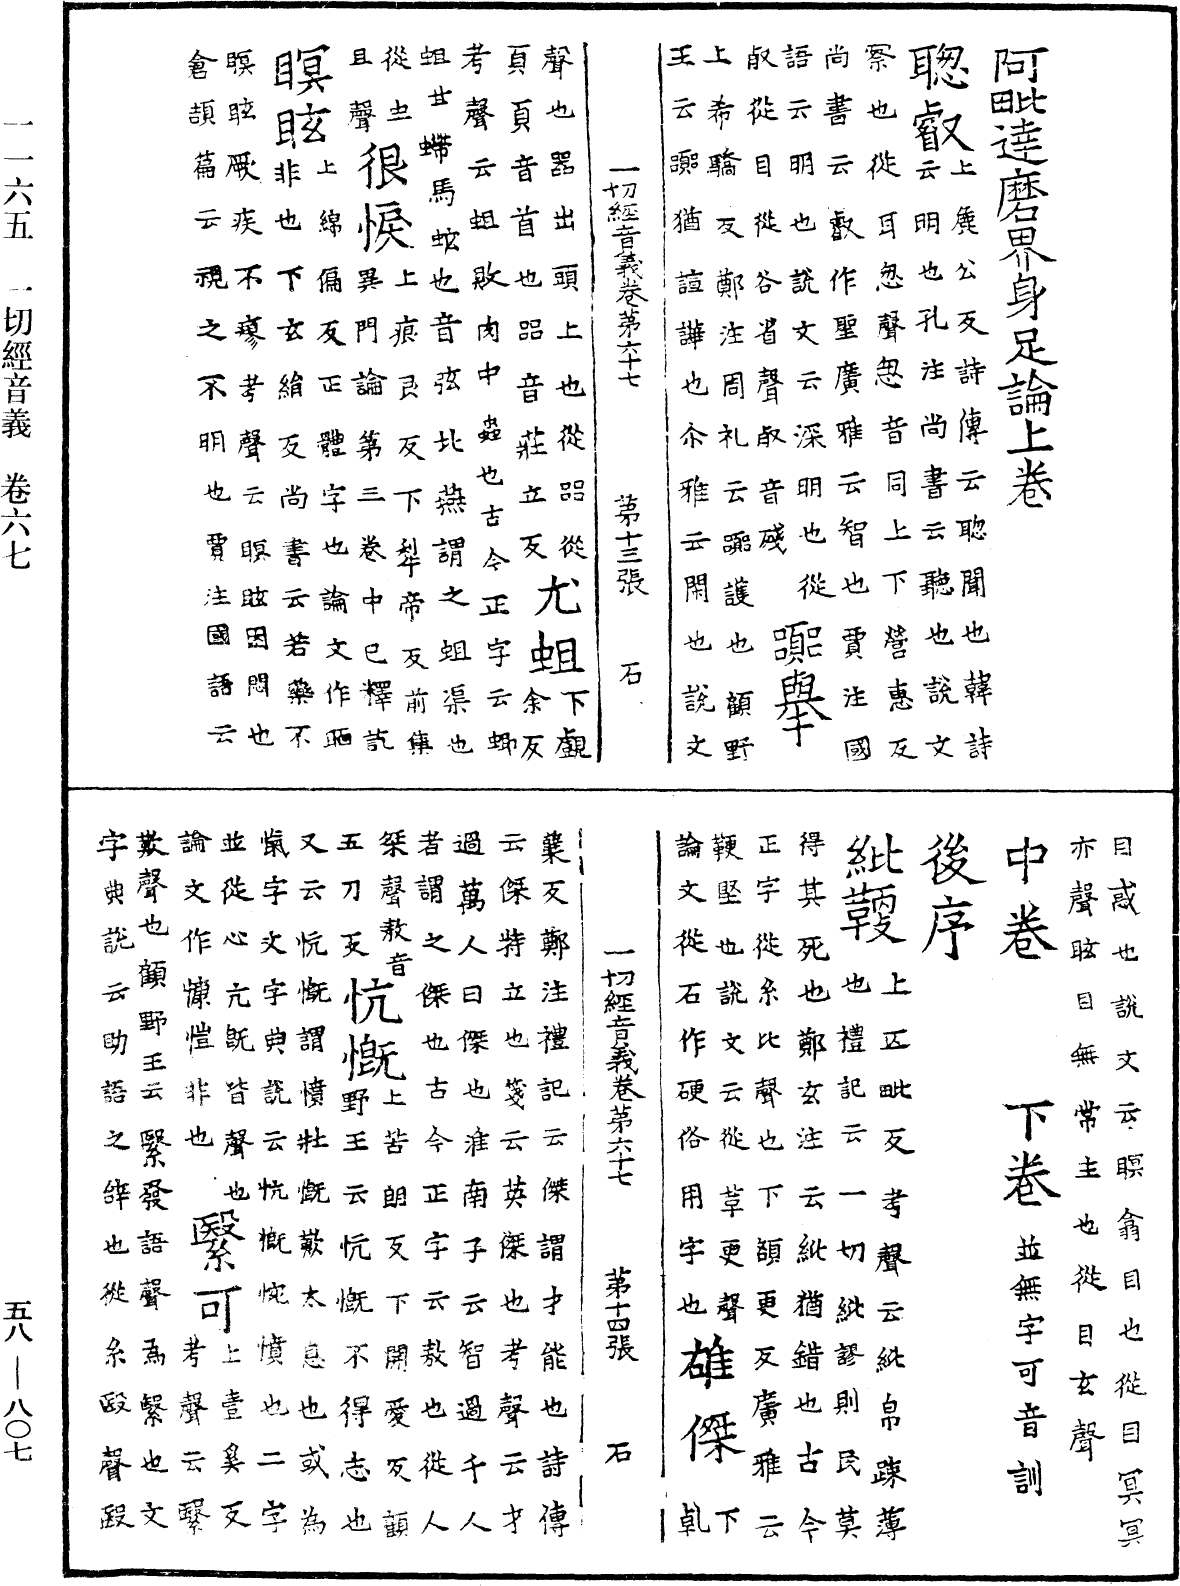 阿毗達磨界身足論上卷
聦叡上麁公反詩傳云聦聞也韓詩
云明也孔注尚書云聽也說文
察也從耳忽聲忽音同上下營惠反
尚書云叡作聖廣雅云智也賈注國
語云明也說文云深明也從
㕡從目從谷省聲㕡音殘 𧬰舉
上希驕反鄭注周礼云𧬰護也顧野
王云𧬰猶諠譁也尒雅云閑也說文
一切經音義卷第六十七 第十三張 石
聲也嚚出頭上也從㗊從
頁頁音首也㗊音莊立反 尤蛆下覷
余反
考聲云蛆敗肉中蟲也古今正字云蝍
蛆甘蟐馬蚿也音弦北燕謂之蛆渠也
從虫
且聲 很悷上痕艮反下犁帝反前集
異門論第三卷中已釋訖
瞑眩上綿偏反正體字也論文作䀎
非也下玄絹反尚書云若藥不
瞑眩厥疾不瘳考聲云瞑眩因悶也
倉頡篇云視之不明也賈注國語云
目惑也說文云瞑翕目也從目冥冥
亦聲眩目無常主也從目玄聲
中卷 下卷並無字可音訓
後序
紕鞕上匹毗反考聲云紕帛踈薄
也禮記云一切紕謬則民莫
得其死也鄭玄注云紕猶錯也古今
正字從糸比聲也下額更反廣雅云
鞕堅也說文云從革更聲 下
論文從石作硬俗用字也 雄傑 乹
一切經音義卷第六十七 第十四張 石
蘖反鄭注禮記云傑謂才能也詩傳
云傑特立也箋云英傑也考聲云才
過萬人曰傑也淮南子云智過千人
者謂之傑也古今正字云敖也從人
桀聲敖音
五刀反 忼慨上苦朗反下開愛反顧
野王云忼慨不得志也
又云忼慨謂憤壯慨歎太息也或為
愾字文字典說云忼慨惋憤也二字
並從心亢旣皆聲也
論文作慷愷非也 繄可上壹奚反
考聲云繄
歎聲也顧野王云繄發語聲焉繄也文
字典說云助語之辝也從糸殹聲殹
一一六五 一切經音義 卷六七
五八—八〇七